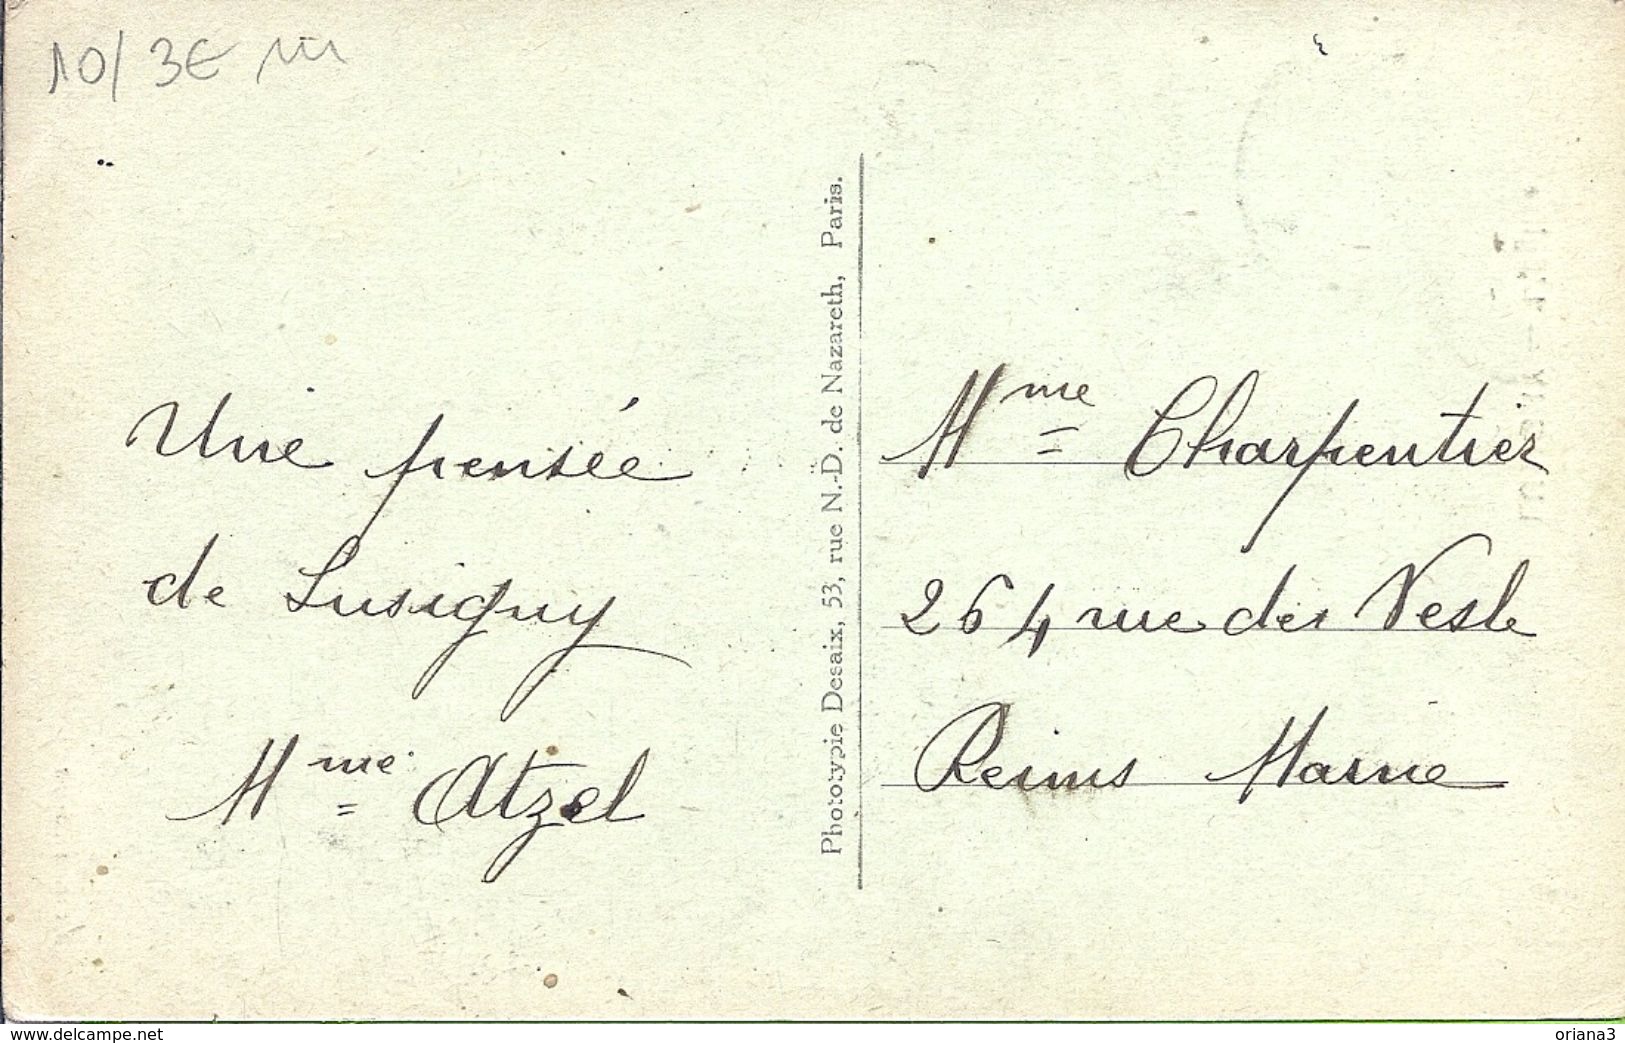 10/ 3€
Une pensée
de Lusigny
Mme Atzel
Phototypie Desaix, 53, rue N.-D. de Nazareth, Paris.
Mme Charpentier
264 rue des Vesle
Reims Marne
www.delcampe.net
oriana3